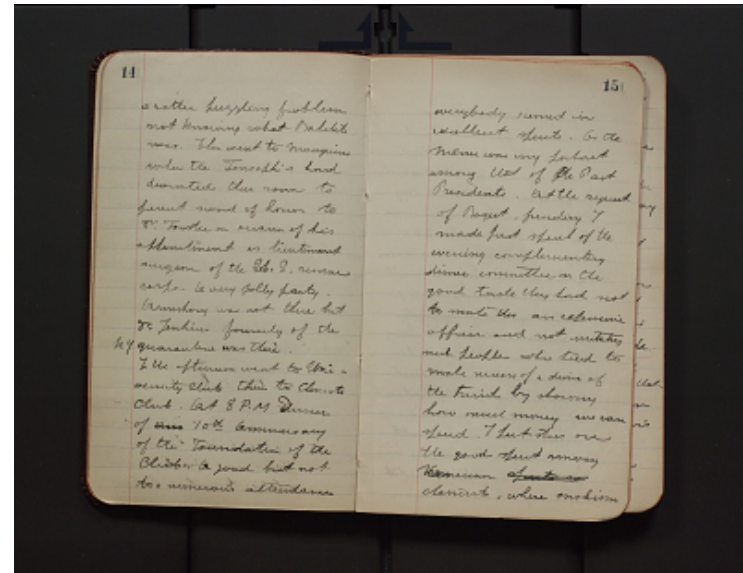 14
a rather puzzling problem
not knowing what Bakelite
was. Then went to
where the had
decorated the room to
present sword of honor to
Dr. on occasion of his
appointment as lieutenant
surgeon of the U.S. reserve
corps. A very jolly party.
was not there but
Dr Jenkins formerly of the
N.Y quarantine was there.
In the afternoon went to Uni-
versity Club then to Chemists
Club. At 8 P.M Dinner
of 10th Anniversary
of the Foundation of the
Club. A good but not
too numerous attendance
15
everybody seemed in
excellent spirits. On the
menu was my portrait
among that of the Past
Presidents. At the request
of I
made first speech of the
evening complimenting
dinner committee on the
good taste they had not
to make this an expensive
affair and not imitating
such people who tried to
make success of a dinner of
the kind by showing
how much money we can
spend. I put this over
the good
element, where